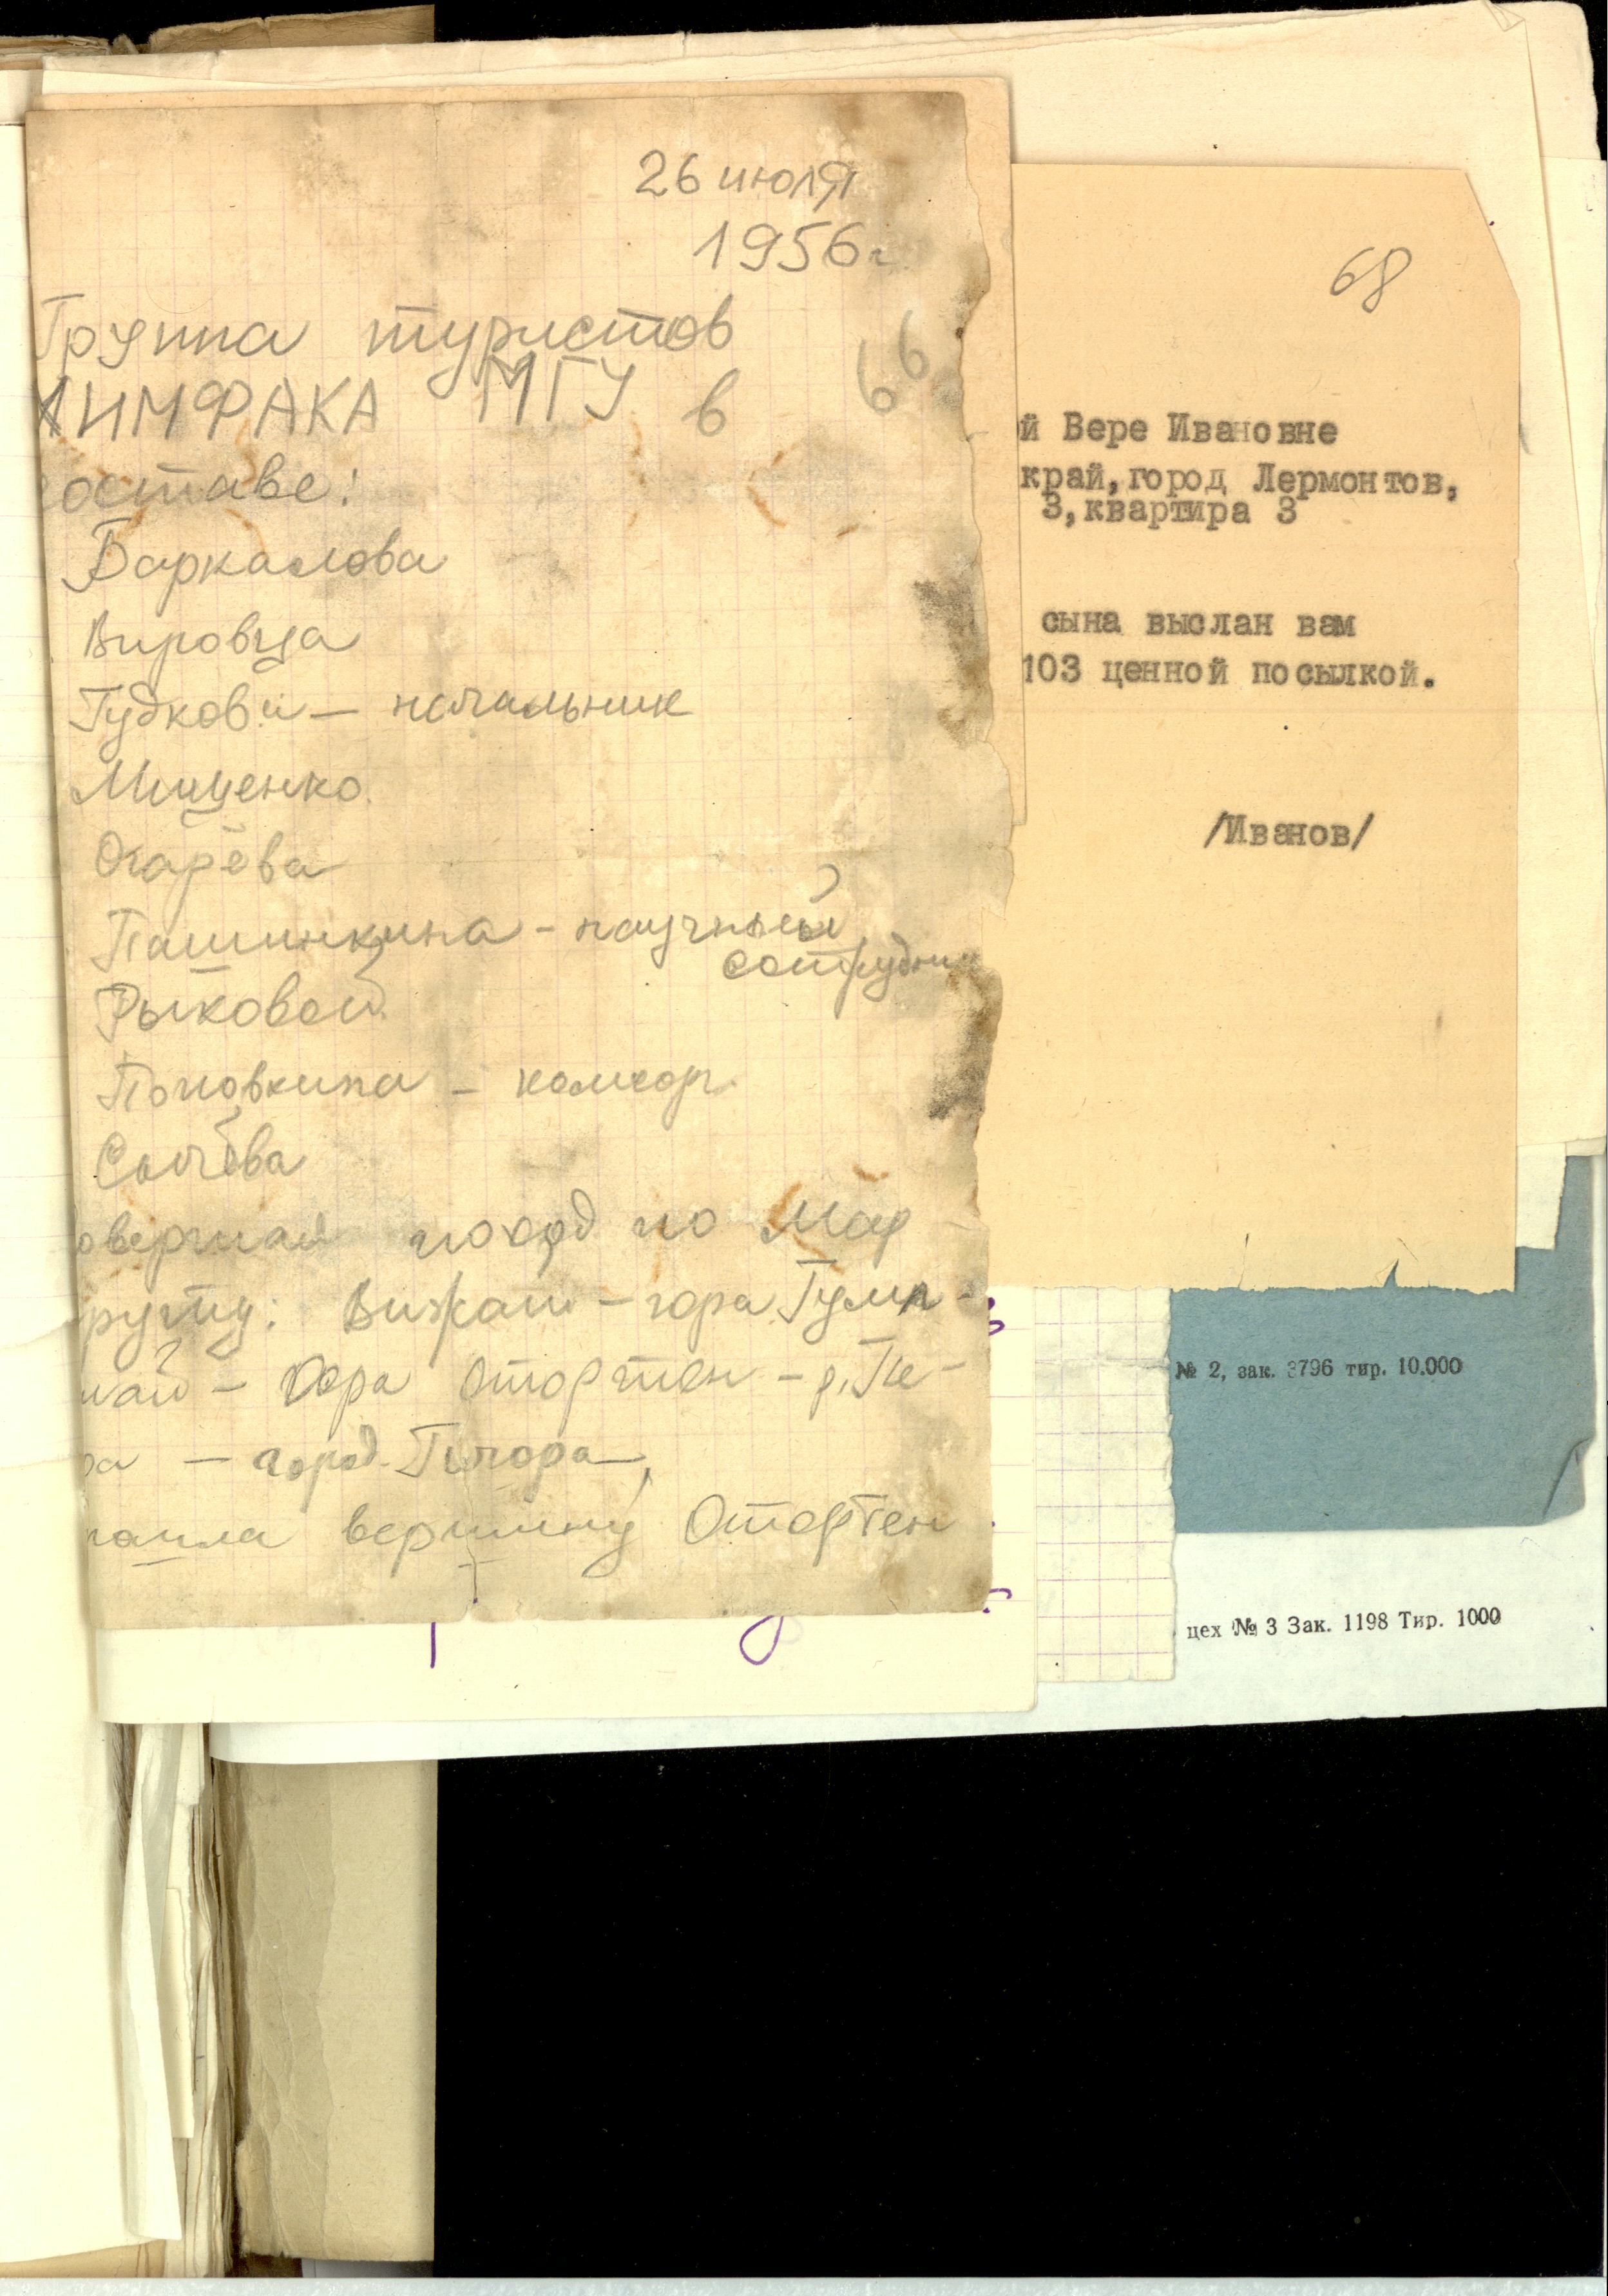 26 июля
1956 г
Группа туристов
ХИМФАКА МГУ в
66
составе:
Баркалова
Вировца
Гудкова — начальник
Мищенко
Огарёва
Пашинкина - научный
сотрудник
Рыковой
Поповкина - комсорг
Сычёва
овершая поход по мар
руту: Вижай - гора Тумп-
Гора Отортен - р. Пе-
ра - город Печора,
вершину Отортен
68
й Вере Ивановне
край, город Лермонтов,
3, квартира 3
сына выслан вам
103 ценной посылкой.
/Иванов/
№ 2, зак. 3796 тир. 10.000
цех № 3 Зак. 1198 Тир. 1000